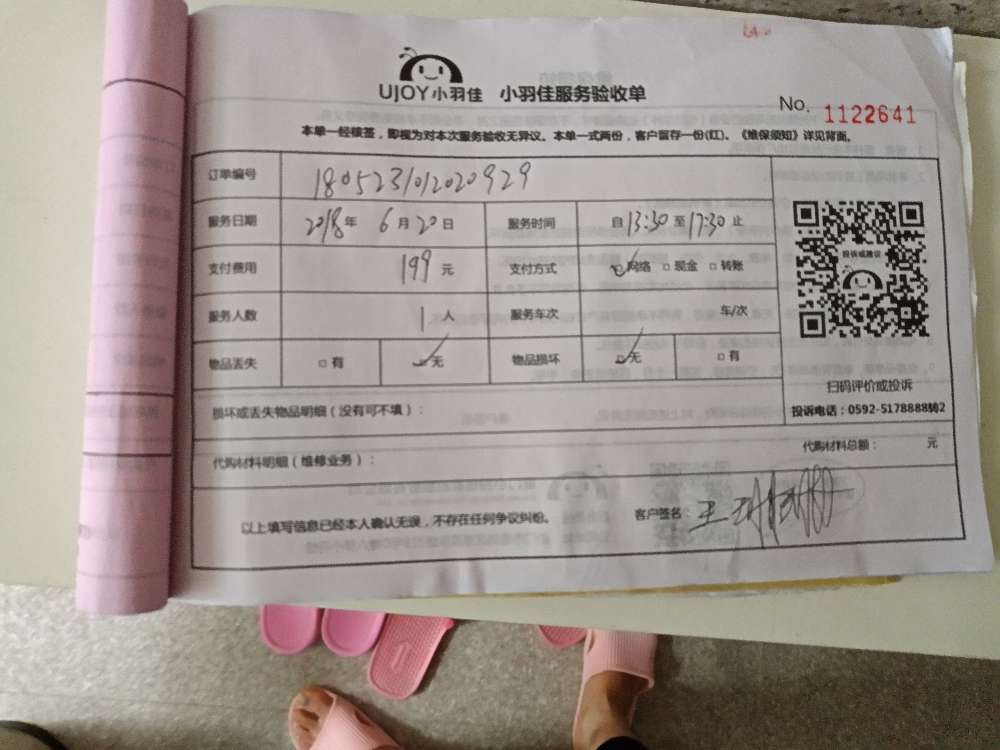 UJOY小羽佳 小羽佳服务验收单
No. 1122641
本单一经核签，即视为对本次服务验收无异议。本单一式两份，客户留存一份(红)。《维保须知》详见背面。
订单编号 1805231012020929
服务日期 2018年 6月20日 服务时间 自13:30至17:30止
支付费用 199元 支付方式 ☑网络 □现金 □转账
服务人数 1人 服务车次 车/次
物品丢失 □有 ☑无 物品损坏 ☑无 □有
投诉或建议
扫码评价或投诉
投诉电话：0592-5178888转2
损坏或丢失物品明细（没有可不填）：
代购材料明细（维修业务）： 代购材料总额： 元
以上填写信息已经本人确认无误，不存在任何争议纠纷。 客户签名：王